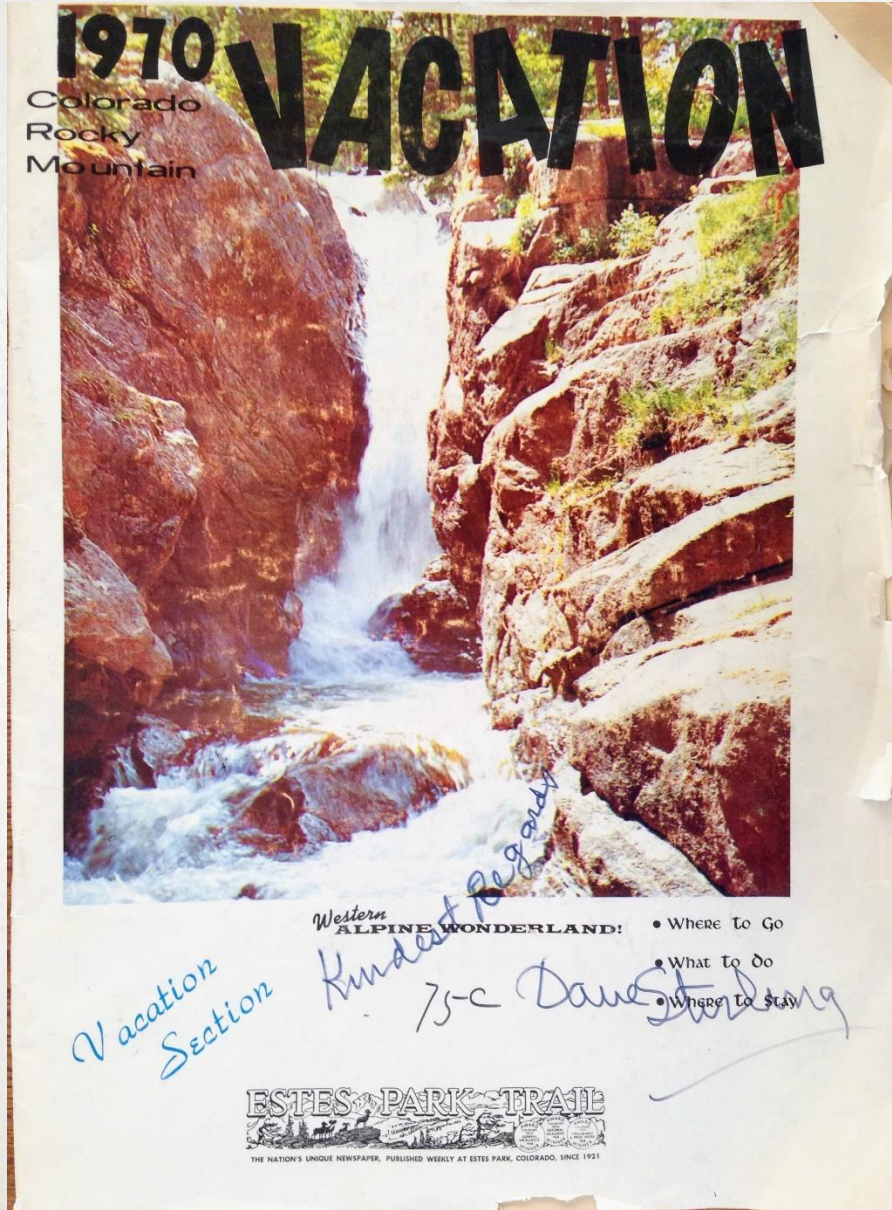 1970 VACATION
Colorado
Rocky
Mountain
Western
ALPINE WONDERLAND!
• Where To Go
• What To do
• Where To Stay
Kindest Regards
75¢ Dave Stirling
Vacation
Section
ESTES PARK TRAIL
THE NATION'S UNIQUE NEWSPAPER, PUBLISHED WEEKLY AT ESTES PARK, COLORADO, SINCE 1921